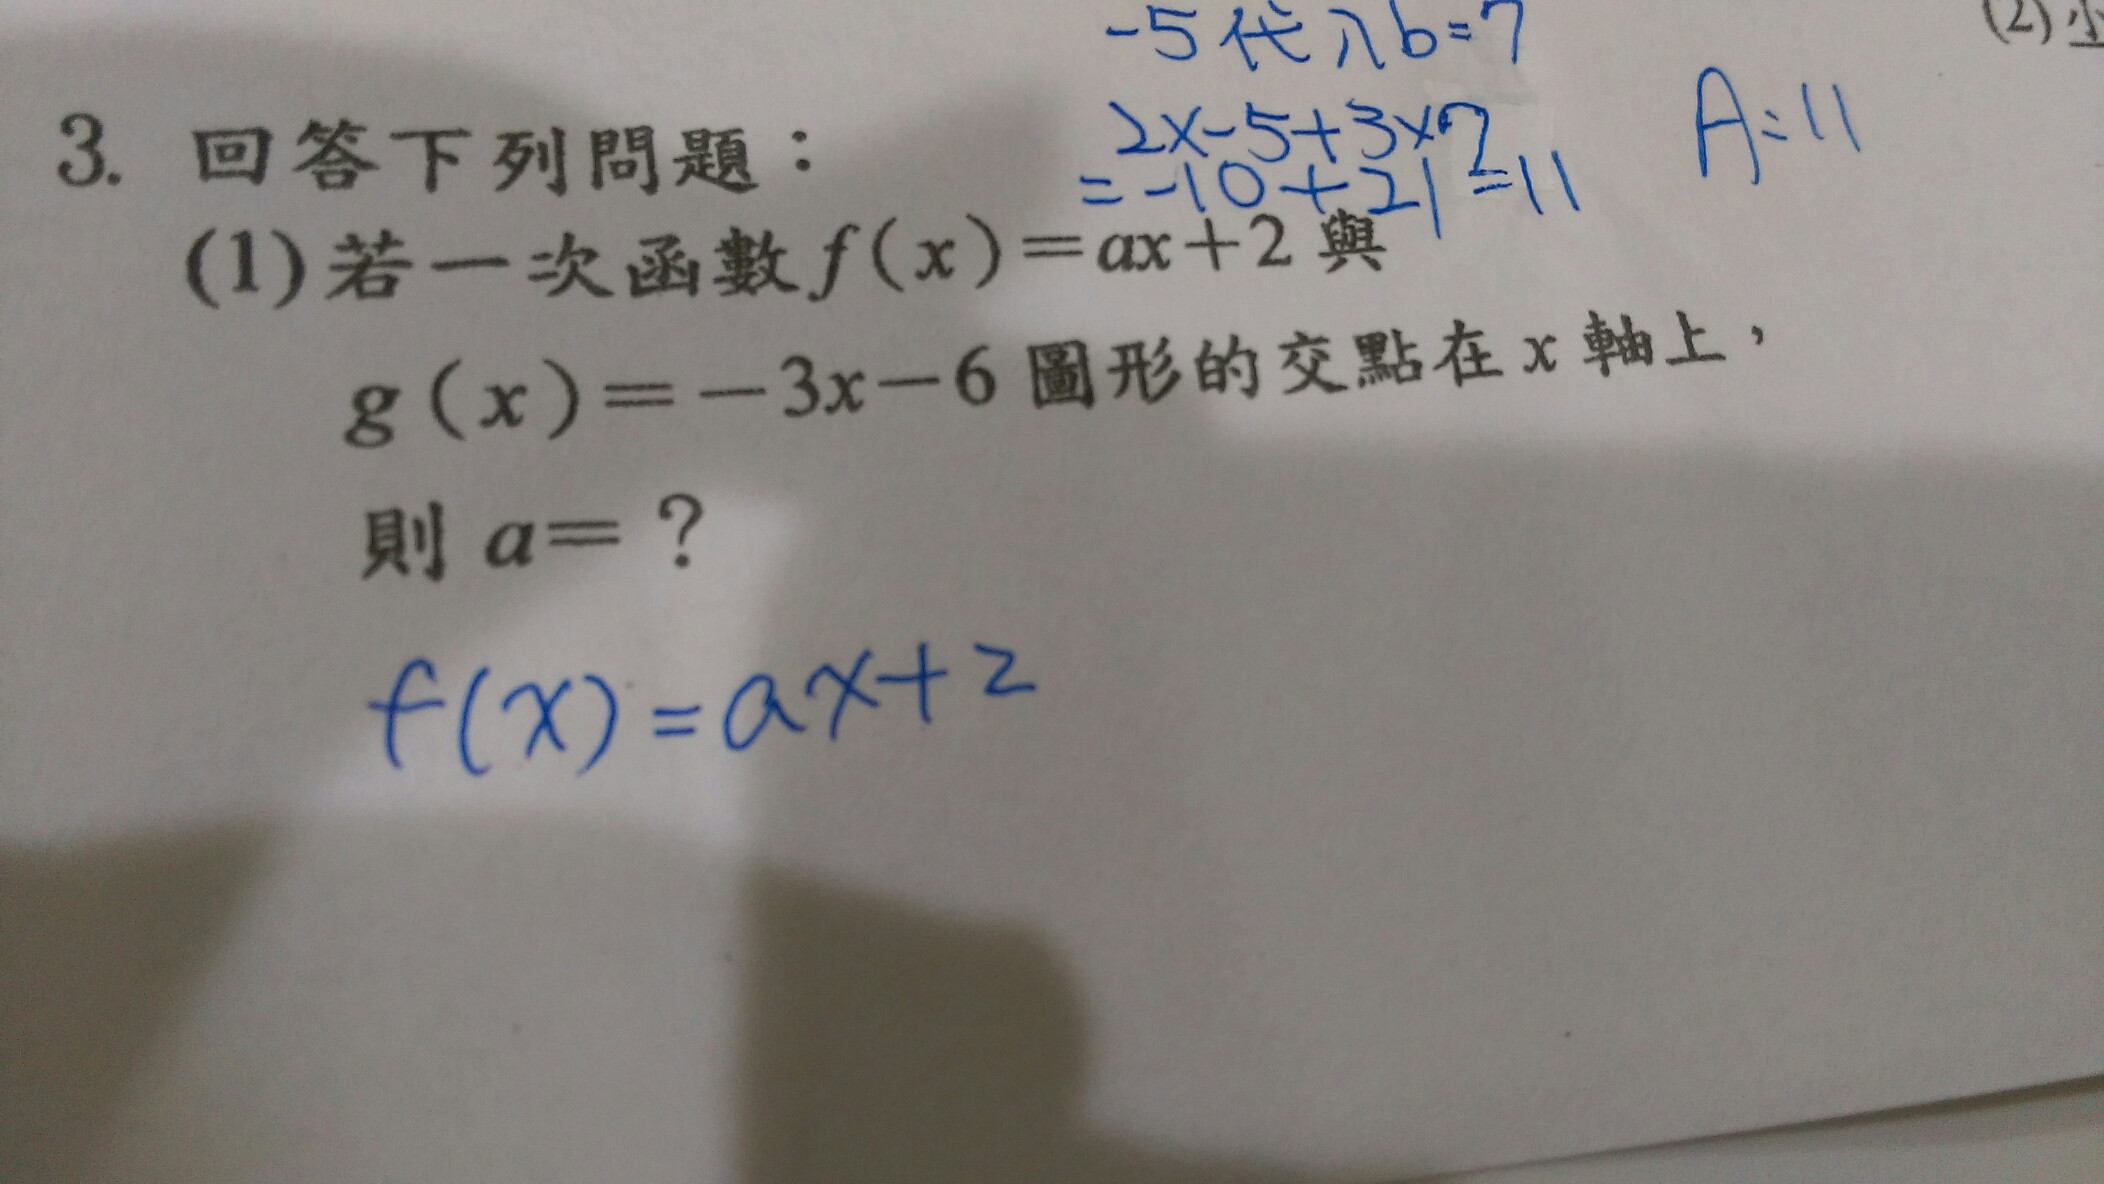 -5代入b=7
(2)
2x-5+3x7
=-10+21=11
A=11
3. 回答下列問題：
(1)若一次函數f(x)=ax+2與
g(x)=-3x-6圖形的交點在x軸上，
則a=？
f(x)=ax+2